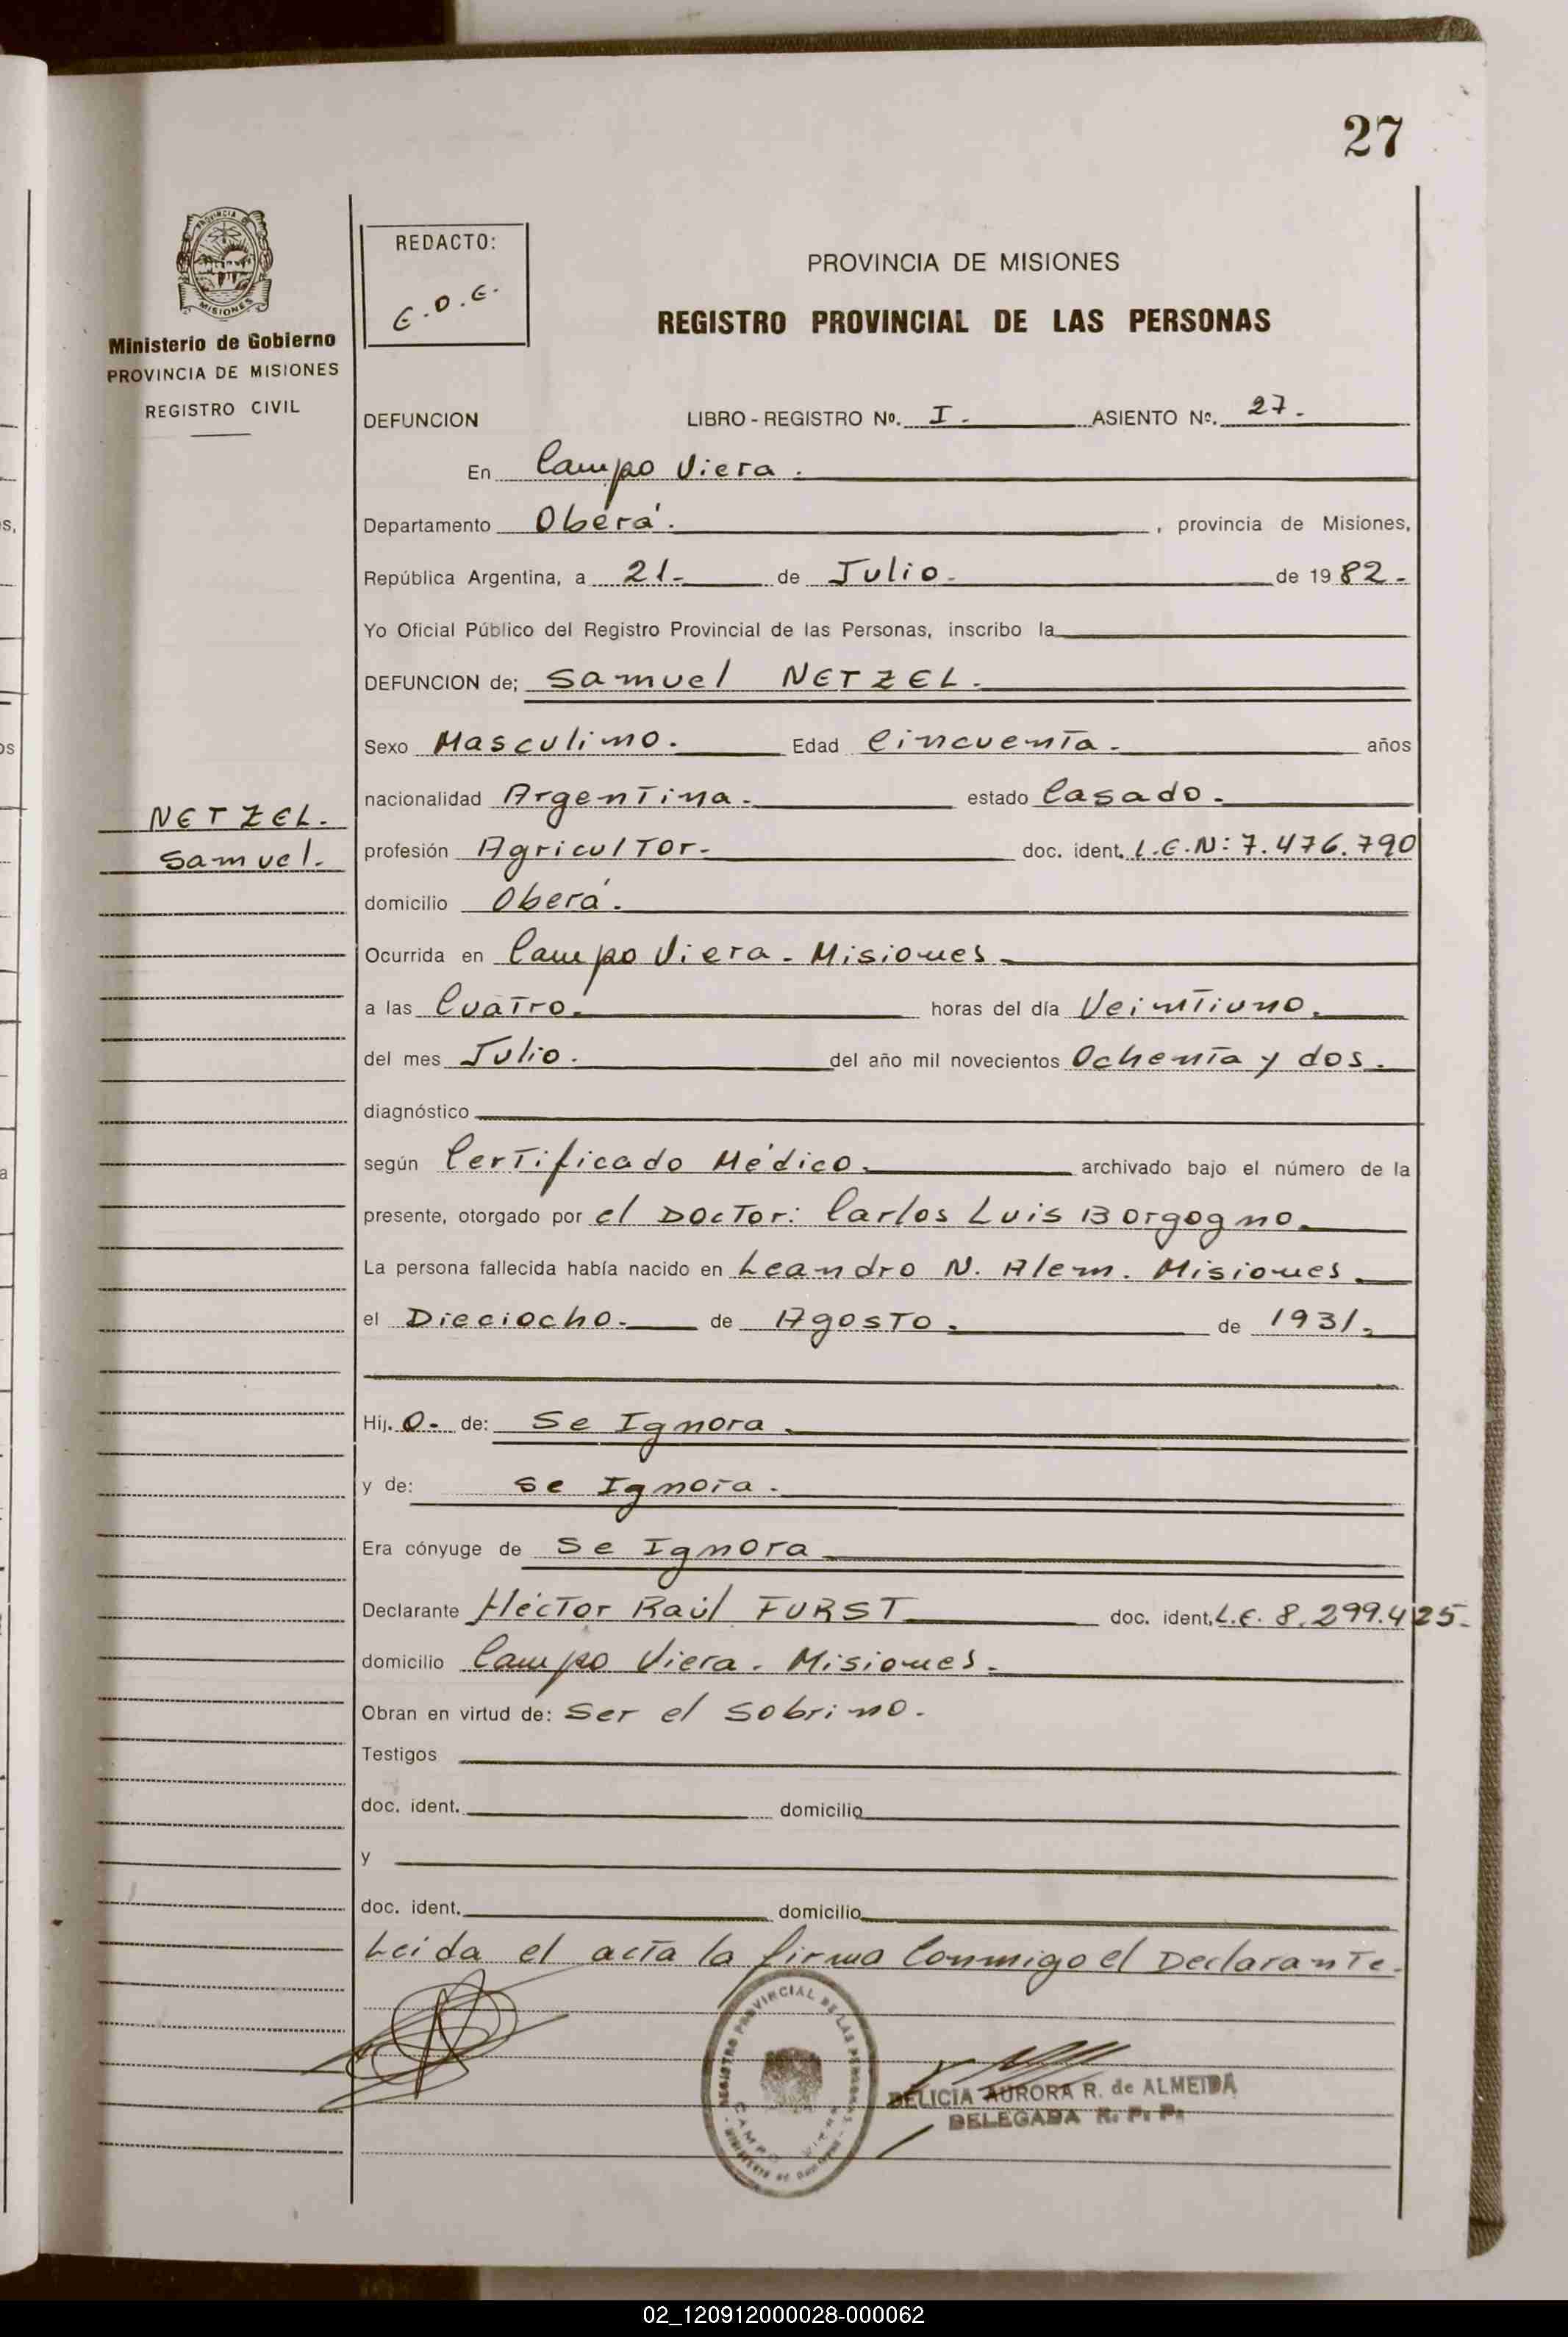 27
PROVINCIA DE
MISIONES
Ministerio de Gobierno
PROVINCIA DE MISIONES
REGISTRO CIVIL
REDACTO:
E.O.E.
PROVINCIA DE MISIONES
REGISTRO PROVINCIAL DE LAS PERSONAS
DEFUNCION LIBRO - REGISTRO Nº. I - ASIENTO Nº. 27.
En Campo Viera.
Departamento Oberá. , provincia de Misiones,
República Argentina, a 21- de Julio. de 19 82-
Yo Oficial Público del Registro Provincial de las Personas, inscribo la
DEFUNCION de; Samuel NETZEL.
Sexo Masculino. Edad Cincuenta. años
nacionalidad Argentina. estado Casado.
NETZEL.
Samuel.
profesión Agricultor. doc. ident. L.E.N: 7.476.790
domicilio Oberá.
Ocurrida en Campo Viera - Misiones
a las Cuatro. horas del día Veintiuno.
del mes Julio. del año mil novecientos Ochenta y dos.
diagnóstico
según Certificado Médico. archivado bajo el número de la
presente, otorgado por el Doctor: Carlos Luis Borgogno.
La persona fallecida había nacido en Leandro N. Alem. Misiones
el Dieciocho. de Agosto. de 1931.
Hij. o- de: Se Ignora
y de: se Ignora.
Era cónyuge de Se Ignora
Declarante Héctor Raúl FURST doc. ident. L.E. 8.299.425-
domicilio Campo Viera. Misiones.
Obran en virtud de: Ser el Sobrino.
Testigos
doc. ident. domicilio
y
doc. ident. domicilio
Leida el acta la firma Conmigo el Declarante.
REGISTRO PROVINCIAL DE LAS PERSONAS
CAMPO VIERA
DELICIA AURORA R. de ALMEIDA
DELEGADA R. P. P.
02_120912000028-000062